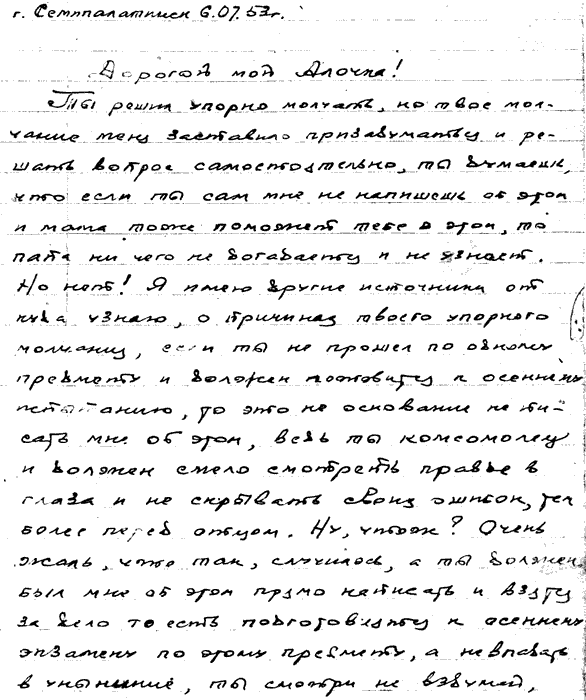 г. Семипалатинск 6.07.53г.
Дорогой мой Алочка!
Ты решил упорно молчать, но твое мол-
чание меня заставило призадуматься и ре-
шать вопрос самостоятельно, ты думаешь,
что если ты сам мне не напишешь об этом
и мама тоже поможет тебе в этом, то
папа ни чего не догадается и не узнает.
Но нет! Я имею другие источники от
куда узнаю, о причинах твоего упорного
молчания, если ты не прошел по одному
предмету и должен готовится к осенним
испытанию, то это не основание не пи-
сать мне об этом, ведь ты комсомолец
и должен смело смотреть правде в
глаза и не скрывать своих ошибок, тем
более перед отцом. Ну, чтож? Очень
жаль, что так, случилось, а ты должен
был мне об этом прямо написать и взяться
за дело то есть подготовиться к осеннему
экзамену по этому предмету, а не впадать
в уныние, ты смотри не вздумай,